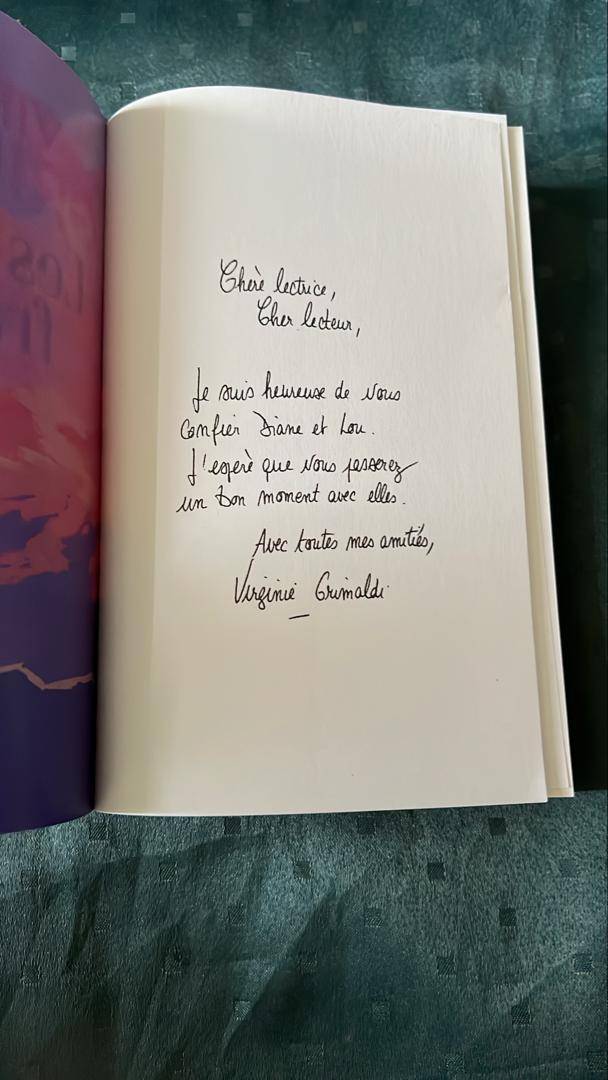 Chère lectrice,
Cher lecteur,
Je suis heureuse de vous
confier Diane et Lou.
J'espère que vous passerez
un bon moment avec elles.
Avec toutes mes amitiés,
Virginie Grimaldi